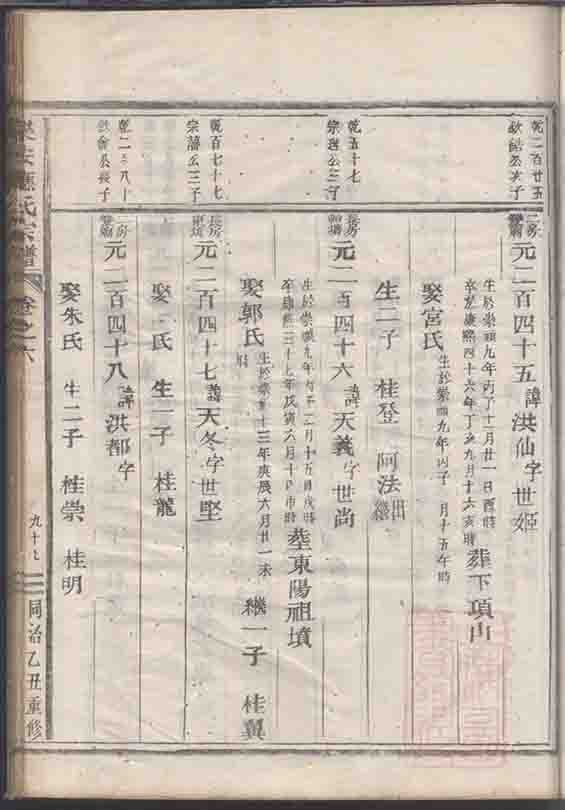 乾二百廿五
公次子
二房
元二百四十五諱洪仙字世姬
生於崇禎九年丙子十二月廿一日酉時
康熙四十六年丁亥九月十六亥時
葬下項山
娶宮氏
生於崇禎九年丙子 月十五午時
生二子 桂登 阿法出繼
乾五十七
宗 公三子
長房
元二百四十六諱天義字世尚
生於崇禎九年丙子二月十五日戌時
卒康熙三十七年戊寅六月十日
葬東陽祖墳
娶郭氏
生於崇禎十三年庚辰六月廿一未時
繼一子 桂翼
乾百七十七
宗藩公三子
長房
元二百四十七諱天冬字世堅
娶 氏 生一子 桂龍
乾二 八十
公長子
二房
元二百四十八諱洪都字
娶朱氏 生二子 桂崇 桂明
應氏宗譜
卷之六
九十七
同治乙丑重修